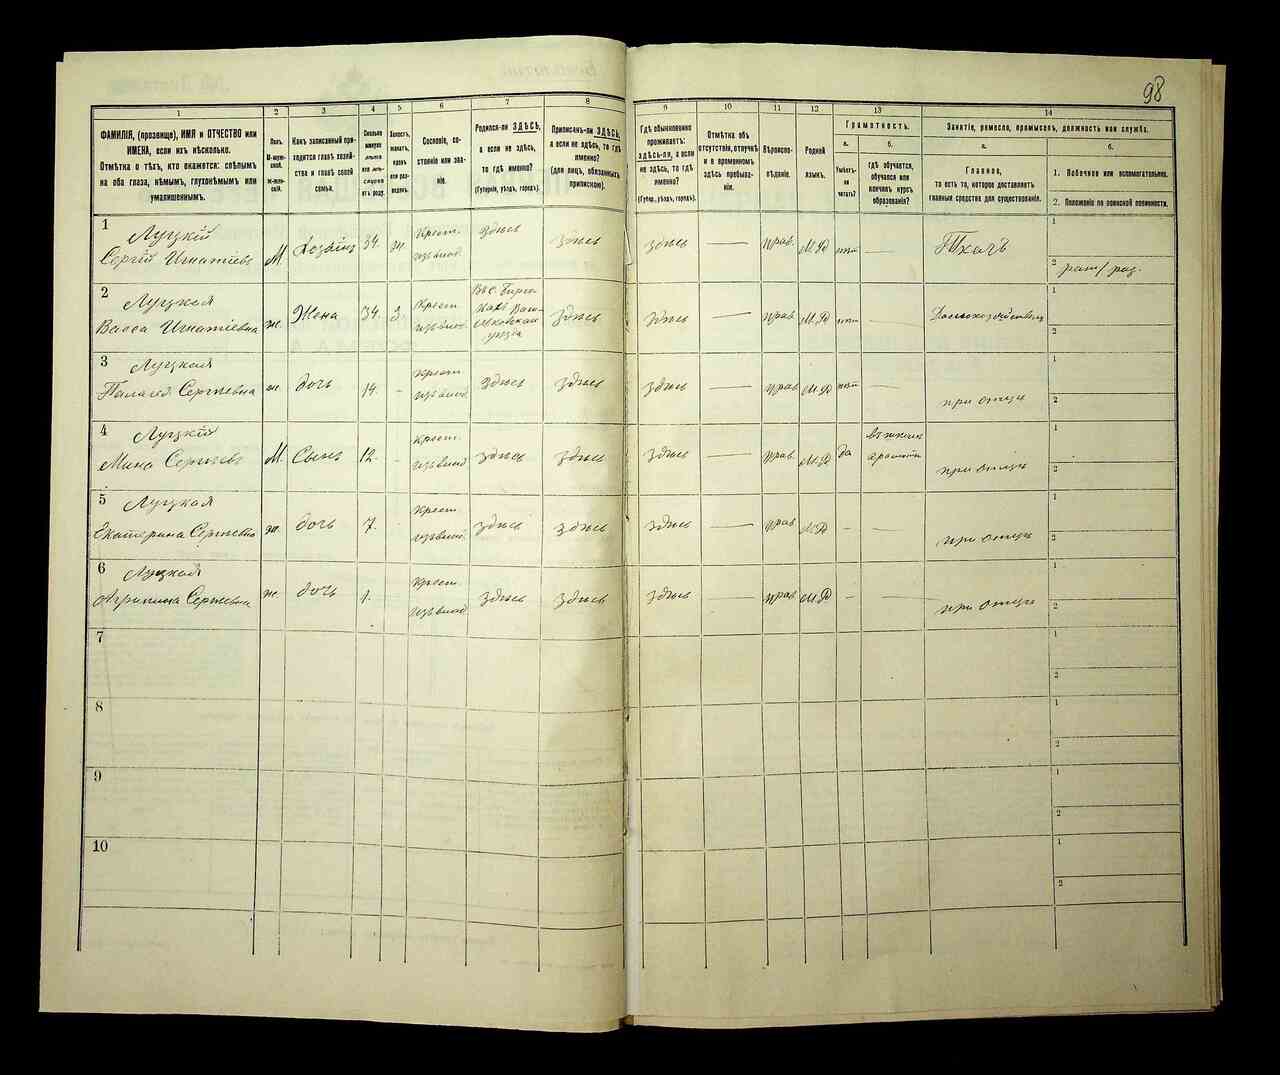 98
1
2
3
4
5
6
7
8
9
10
11
12
13
14
ФАМИЛІЯ, (прозвище), ИМЯ и ОТЧЕСТВО или
ИМЕНА, если ихъ нѣсколько.
Отмѣтка о тѣхъ, кто окажется: слѣпымъ
на оба глаза, нѣмымъ, глухонѣмымъ или
умалишеннымъ.
Полъ.
М-муж-
ской.
Ж-жен-
скій.
Какъ записанный при-
ходится главѣ хозяй-
ства и главѣ своей
семьи.
Сколько
минуло
лѣтъ
или мѣ-
сяцевъ
отъ роду.
Холостъ,
женатъ,
вдовъ
или раз-
веденъ.
Сословіе, со-
стояніе или зва-
ніе.
Родился-ли ЗДѢСЬ,
а если не здѣсь,
то гдѣ именно?
(Губернія, уѣздъ, городъ).
Приписанъ-ли ЗДѢСЬ,
а если не здѣсь, то гдѣ
именно?
(для лицъ, обязанныхъ
припискою).
Гдѣ обыкновенно
проживаетъ:
здѣсь-ли, а если
не здѣсь, то гдѣ
именно?
(Губер., уѣздъ, городъ).
Отмѣтка объ
отсутствіи, отлучкѣ
и о временномъ
здѣсь пребыва-
ніи.
Вѣроиспо-
вѣданіе.
Родной
языкъ.
Грамотность.
а.
Умѣетъ-
ли
читать?
б.
гдѣ обучается,
обучался или
кончилъ курсъ
образованія?
Занятіе, ремесло, промыселъ, должность или служба.
а.
Главное,
то есть то, которое доставляетъ
главныя средства для существованія.
б.
1. Побочное или вспомогательное.
2. Положеніе по воинской повинности.
1
Луцкій
Сергій Игнатіевъ М. Хозяинъ 34. ж. Крест.
изъ влад. здѣсь здѣсь здѣсь — прав. М.Р нѣтъ — Ткачъ
1
2
2
Луцкая
Васса Игнатіевна ж. Жена 34. З. Крест.
изъ влад.
здѣсь здѣсь — прав. М.Р нѣтъ —
1
2
3
Луцкая
Палагея Сергѣевна ж. дочь 14. - Крест.
изъ влад. здѣсь здѣсь здѣсь — прав. М.Р нѣтъ — при отцѣ
1
2
4
Луцкій
Мина Сергѣевъ М. Сынъ 12. - Крест.
изъ влад здѣсь здѣсь здѣсь — прав. М.Р да
при отцѣ
1
2
5
Луцкая
Екатерина Сергѣевна ж. дочь 7. Крест.
изъ влад. здѣсь здѣсь здѣсь — прав М.Р - — при отцѣ
1
2
6
Луцкая
Агрипина Сергѣевна ж. дочь 1. Крест.
изъ влад здѣсь здѣсь здѣсь — прав. М.Р - — при отцѣ
1
2
7
1
2
8
1
2
9
1
2
10
1
2